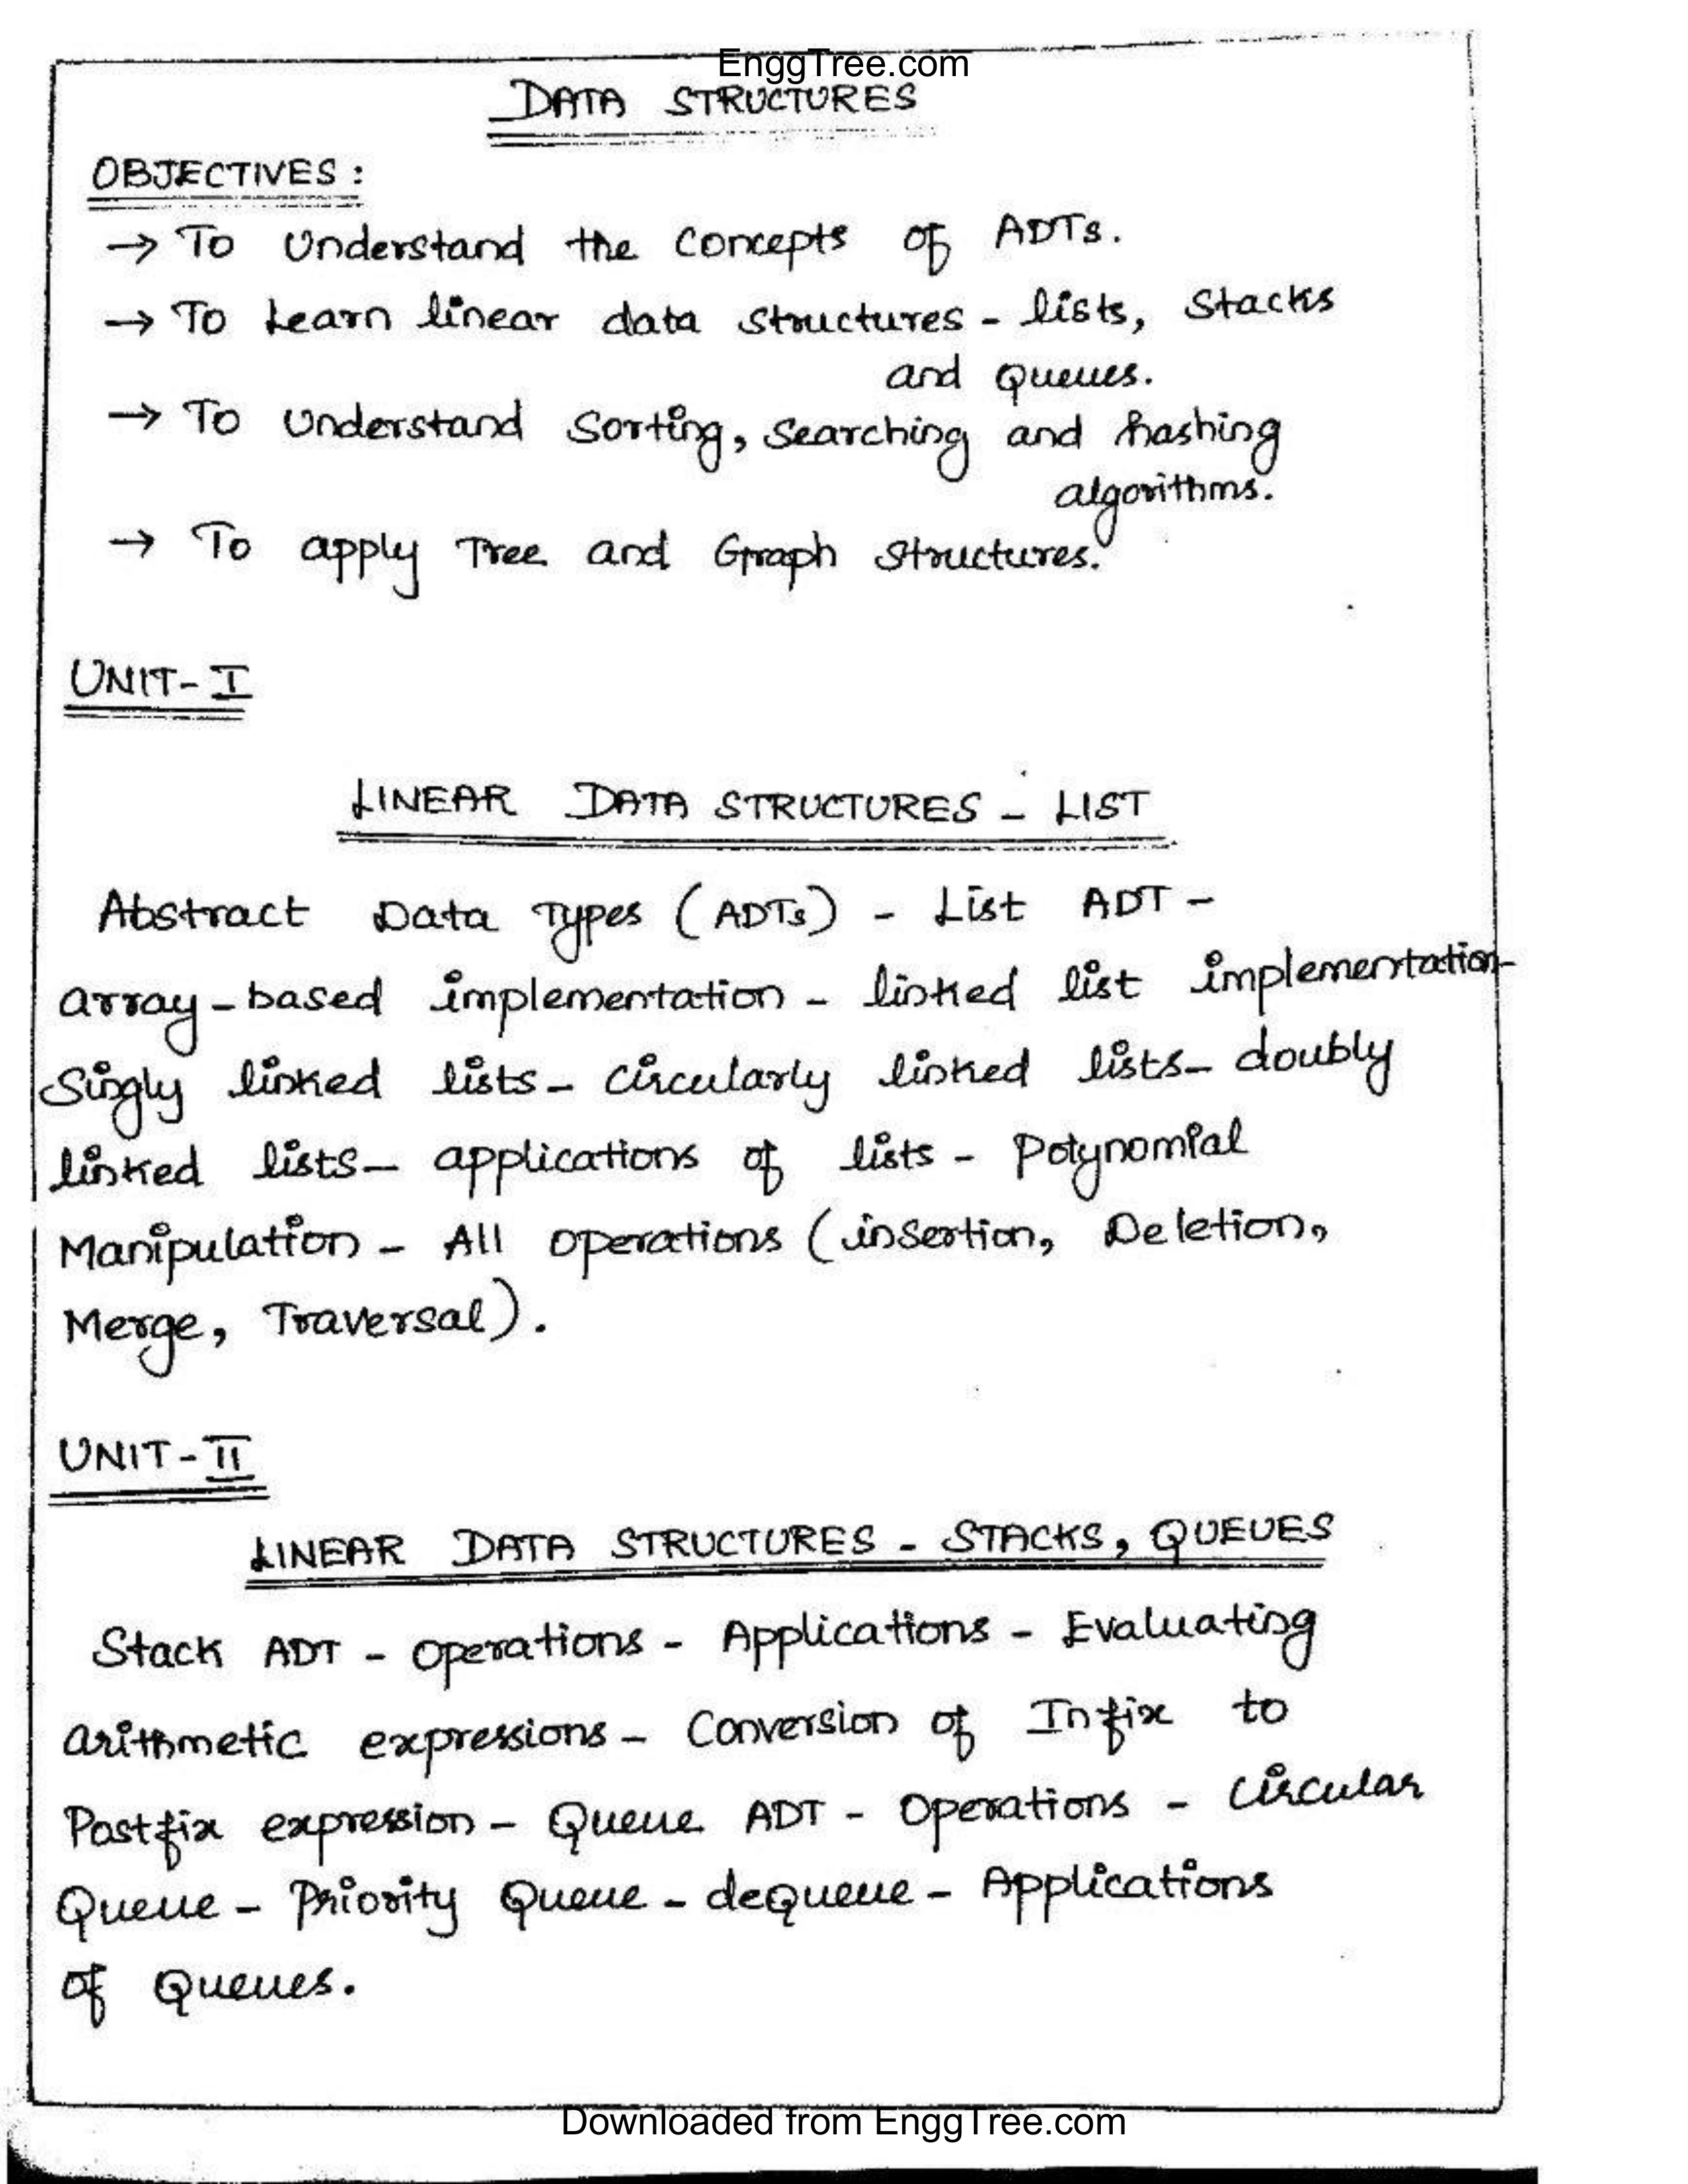 EnggTree.com
DATA STRUCTURES
OBJECTIVES:
→ To Understand the concepts of ADTs.
→ To Learn linear data structures - lists, Stacks
and Queues.
→ To Understand Sorting, Searching and hashing
algorithms.
→ To apply Tree and Graph Structures.
UNIT-I
LINEAR DATA STRUCTURES - LIST
Abstract Data Types (ADTs) - List ADT -
array-based implementation - linked list implementation-
Singly linked lists - circularly linked lists - doubly
linked lists - applications of lists - Polynomial
Manipulation - All operations (insertion, Deletion,
Merge, Traversal).
UNIT-II
LINEAR DATA STRUCTURES - STACKS, QUEUES
Stack ADT - operations - Applications - Evaluating
arithmetic expressions - Conversion of Infix to
Postfix expression - Queue ADT - Operations - Circular
Queue - Priority Queue - deQueue - Applications
of Queues.
Downloaded from EnggTree.com